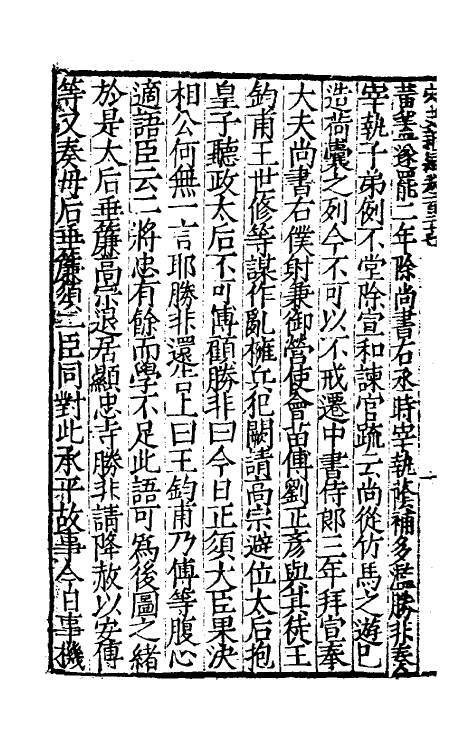 宋史新編卷一百二十七
黃蓋遂罷二年除尚書右丞時宰執蔭補多濫勝非奏今
宰執子弟例不堂除宣和諫官疏云尚從竹馬之遊已
造荷囊之列今不可以不戒遷中書侍郎三年拜宣奉
大夫尚書右僕射兼御營使會苗傅劉正彥與其徒王
鈞甫王世修等謀作亂擁兵犯闕請高宗避位太后抱
皇子聽政太后不可傅顧勝非曰今日正須大臣果決
相公何無一言耶勝非還告上曰王鈞甫乃傅等腹心
適語臣云二將忠有餘而學不足此語可為後圖之緒
於是太后垂簾高宗退居顯忠寺勝非請降赦以安傅
等又奏母后垂簾須二臣同對此承平故事今日事機